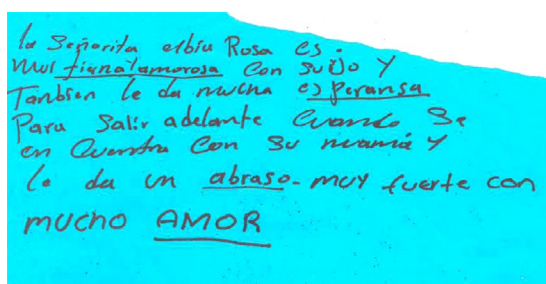 la Señorita elbia Rosa es.
Mui tierna/amorosa con su ijo y
Tanbien le da mucha esperansa
Para Salir adelante Cuando Se
en Cuentra Con Su mamá y
le da un abraso. muy fuerte con
mucho AMOR